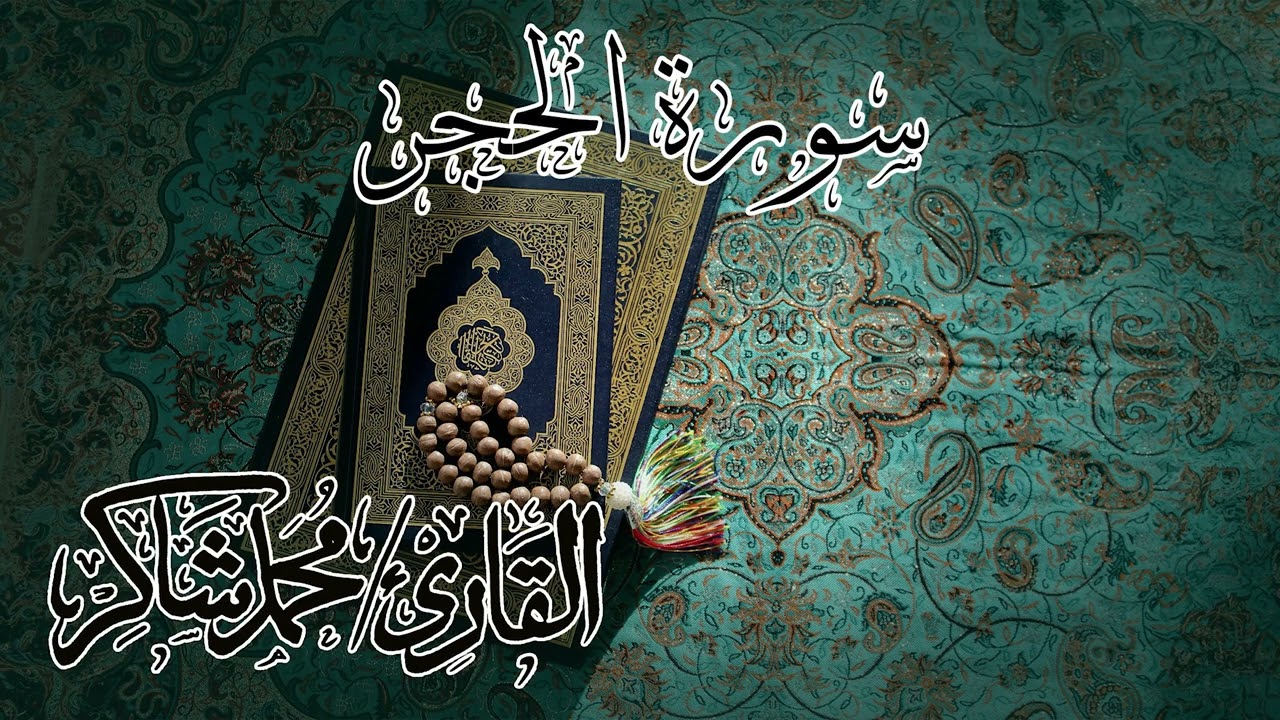 سورة الحجر
القَارِئ/ مُحمد شَاكِر